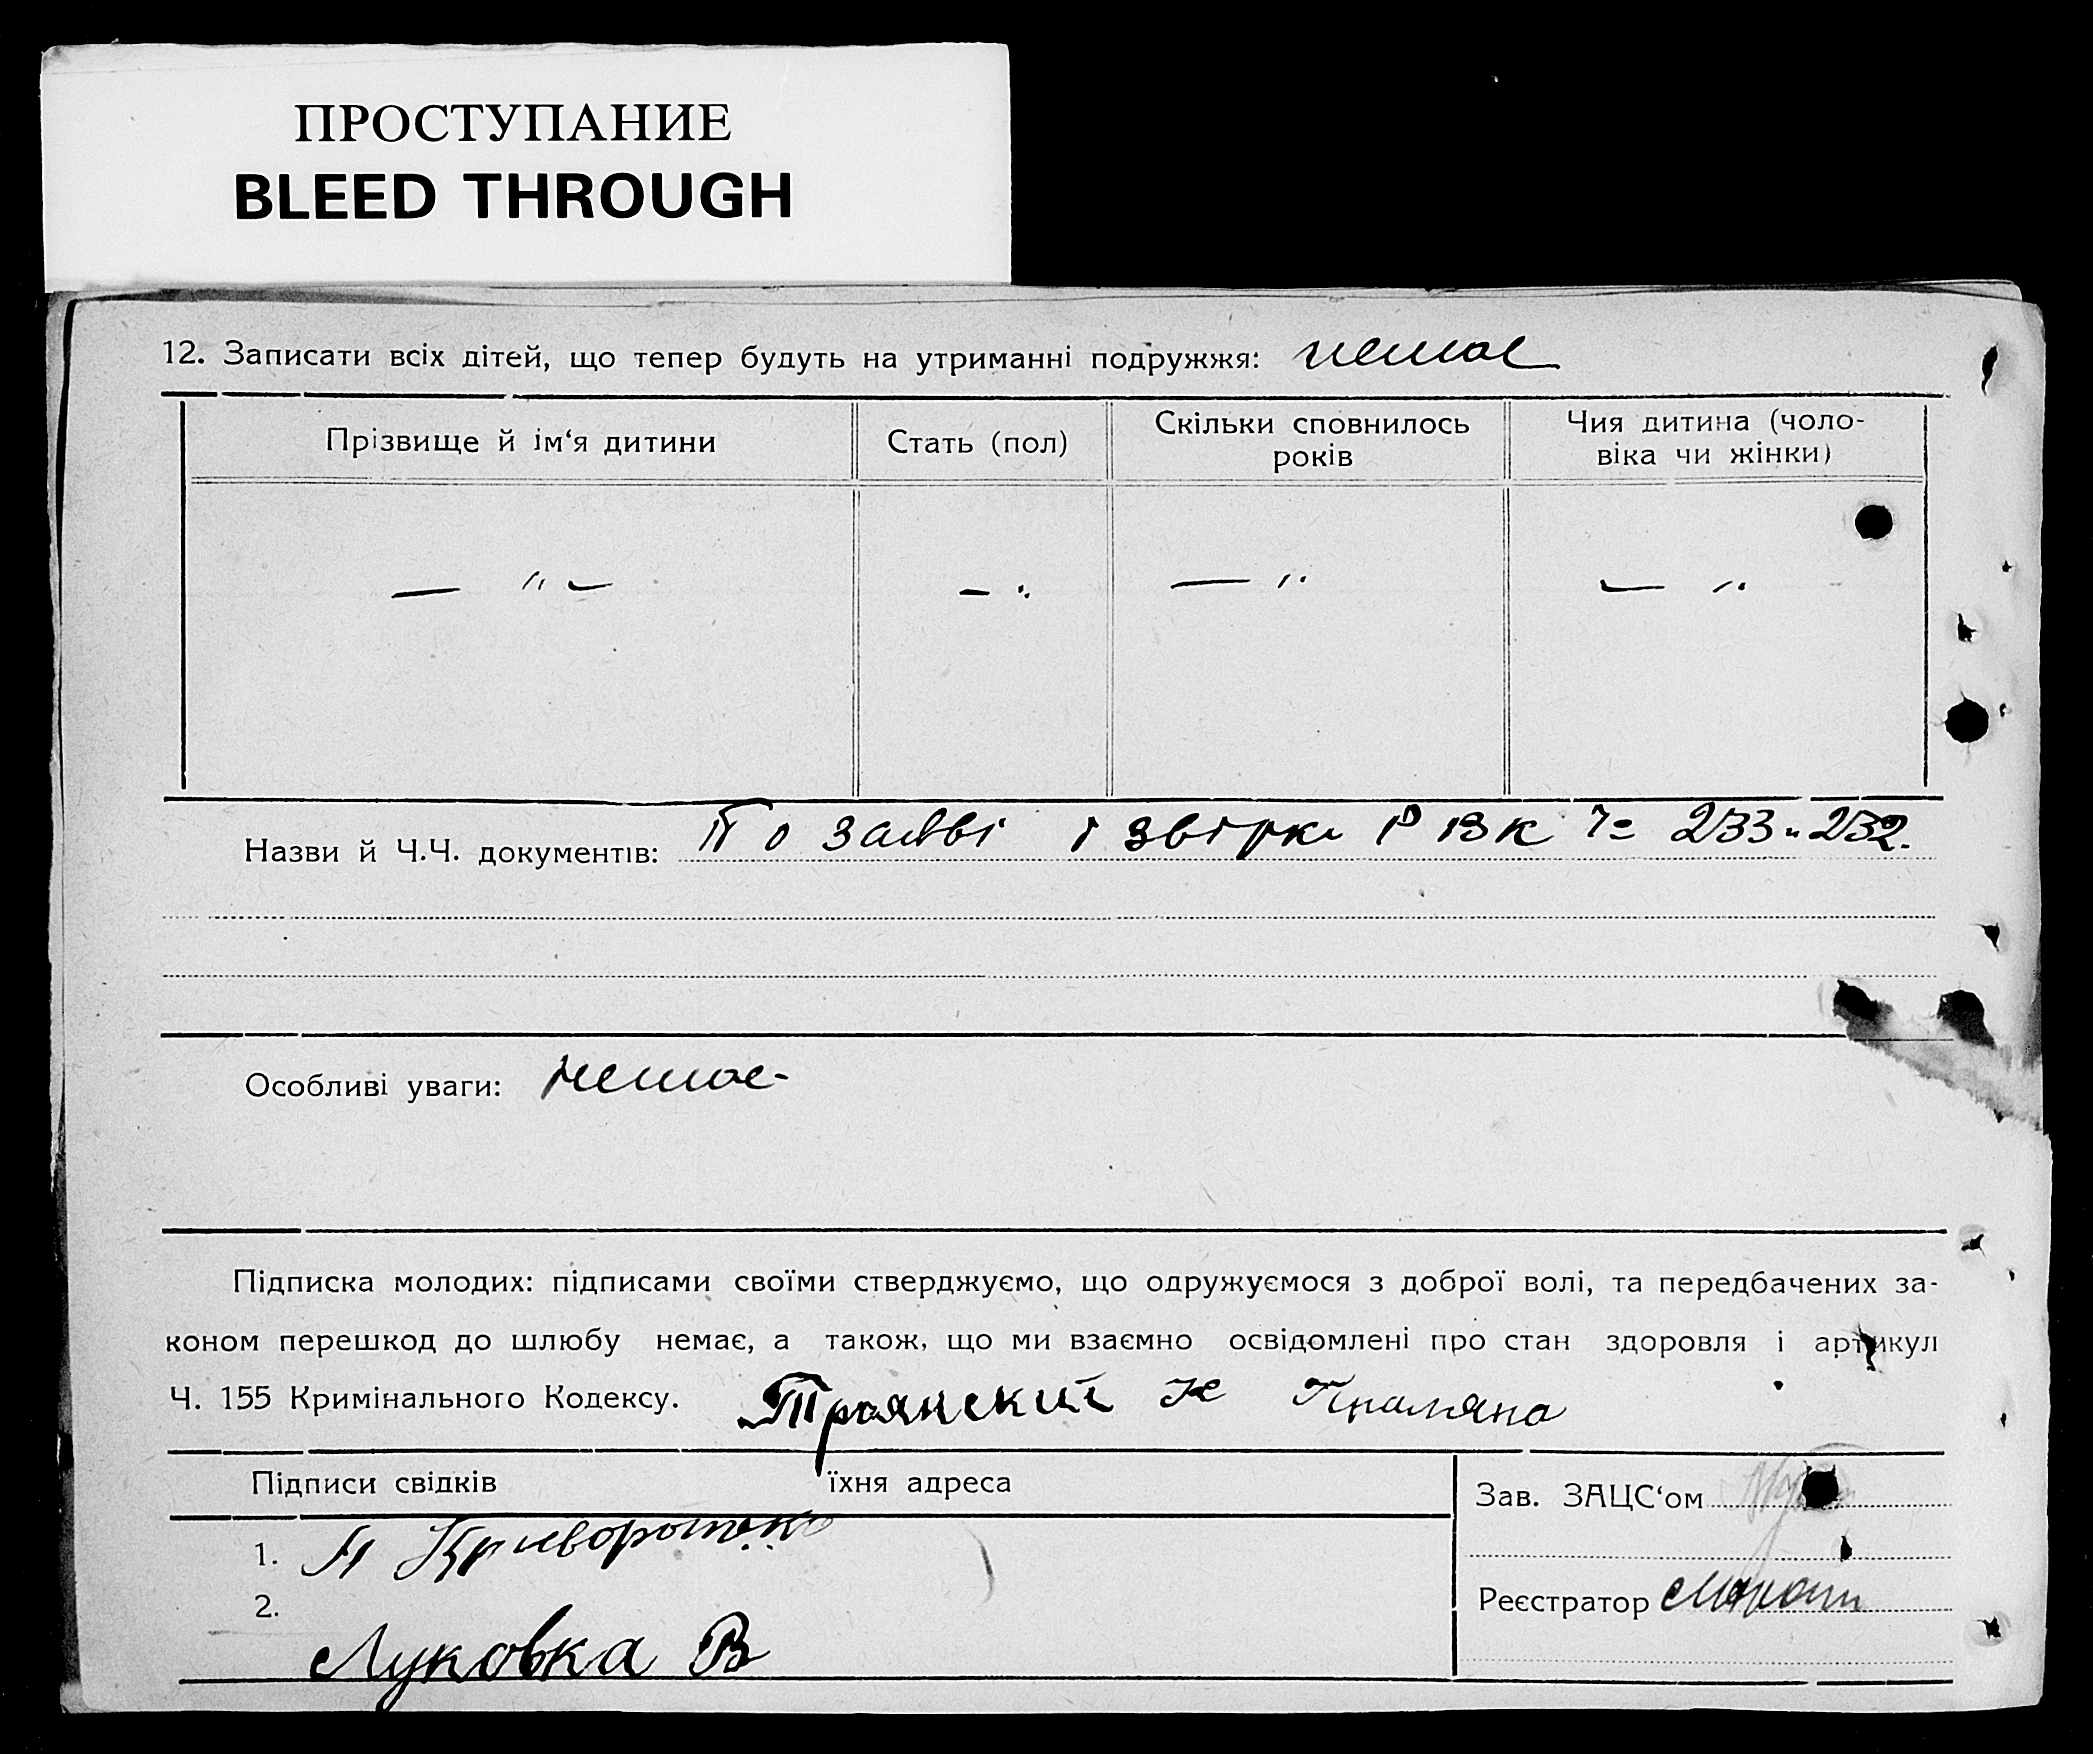 ПРОСТУПАНИЕ
BLEED THROUGH
12. Записати всіх дітей, що тепер будуть на утриманні подружжя: немає
Прізвище й ім‘я дитини
Стать (пол)
Скільки сповнилось
років
Чия дитина (чоло-
віка чи жінки)
— " —
— "
— "
— "
Назви й Ч.Ч. документів: По заяві і звірки РВК 233 и 232.
Особливі уваги: немає
Підписка молодих: підписами своїми стверджуємо, що одружуємося з доброї волі, та передбачених за-
коном перешкод до шлюбу немає, а також, що ми взаємно освідомлені про стан здоровля і артикул
Ч. 155 Кримінального Кодексу. Троянский
Підписи свідків їхня адреса
Зав. ЗАЦС‘ом
1.
2.
Реєстратор
Луковка В